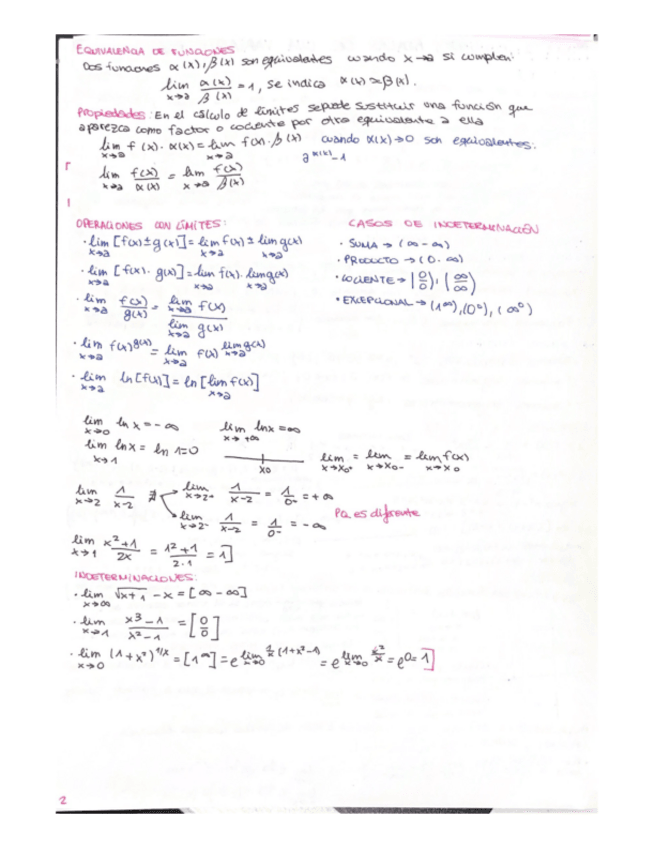 EQUIVALENCIA DE FUNCIONES
Dos funciones α(x), β(x) son equivalentes cuando x→a si cumplen:
lim x→a α(x)/β(x) = 1, se indica α(x) ≃ β(x).
Propiedades: En el cálculo de límites se puede sustituir una función que
aparezca como factor o cociente por otra equivalente a ella
lim x→a f(x)·α(x) = lim x→a f(x)·β(x) cuando α(x)→0 son equivalentes:
lim x→a f(x)/α(x) = lim x→a f(x)/β(x)
OPERACIONES CON LÍMITES:
· lim x→a [f(x)±g(x)] = lim x→a f(x) ± lim x→a g(x)
· lim x→a [f(x)·g(x)] = lim x→a f(x)· lim x→a g(x)
· lim x→a f(x)/g(x) = lim x→a f(x) / lim g(x)
· lim x→a f(x)^g(x) = lim x→a f(x)^lim x→a g(x)
· lim x→a ln[f(x)] = ln[lim x→a f(x)]
CASOS DE INDETERMINACIÓN
· SUMA → (∞-∞)
· PRODUCTO → (0·∞)
· COCIENTE → (0/0), (∞/∞)
· EXCEPCIONAL → (1^∞), (0^0), (∞^0)
lim x→0 ln x = -∞ lim x→+∞ ln x = ∞
lim x→1 ln x = ln 1 = 0
x0
lim x→x0+ = lim x→x0- = lim x→x0 f(x)
lim x→2 1/x-2 ∄
lim x→2+ 1/x-2 = 1/0- = +∞
lim x→2- 1/x-2 = 1/0- = -∞
Pq es diferente
lim x→1 x²+1/2x = 1²+1/2·1 = 1]
INDETERMINACIONES:
· lim x→∞ √x+1 - x = [∞-∞]
· lim x→1 x³-1/x²-1 = [0/0]
· lim x→0 (1+x²)^1/x = [1^∞] = e^lim x→0 1/x (1+x²-1) = e^lim x→0 x²/x = e^0 = 1]
2